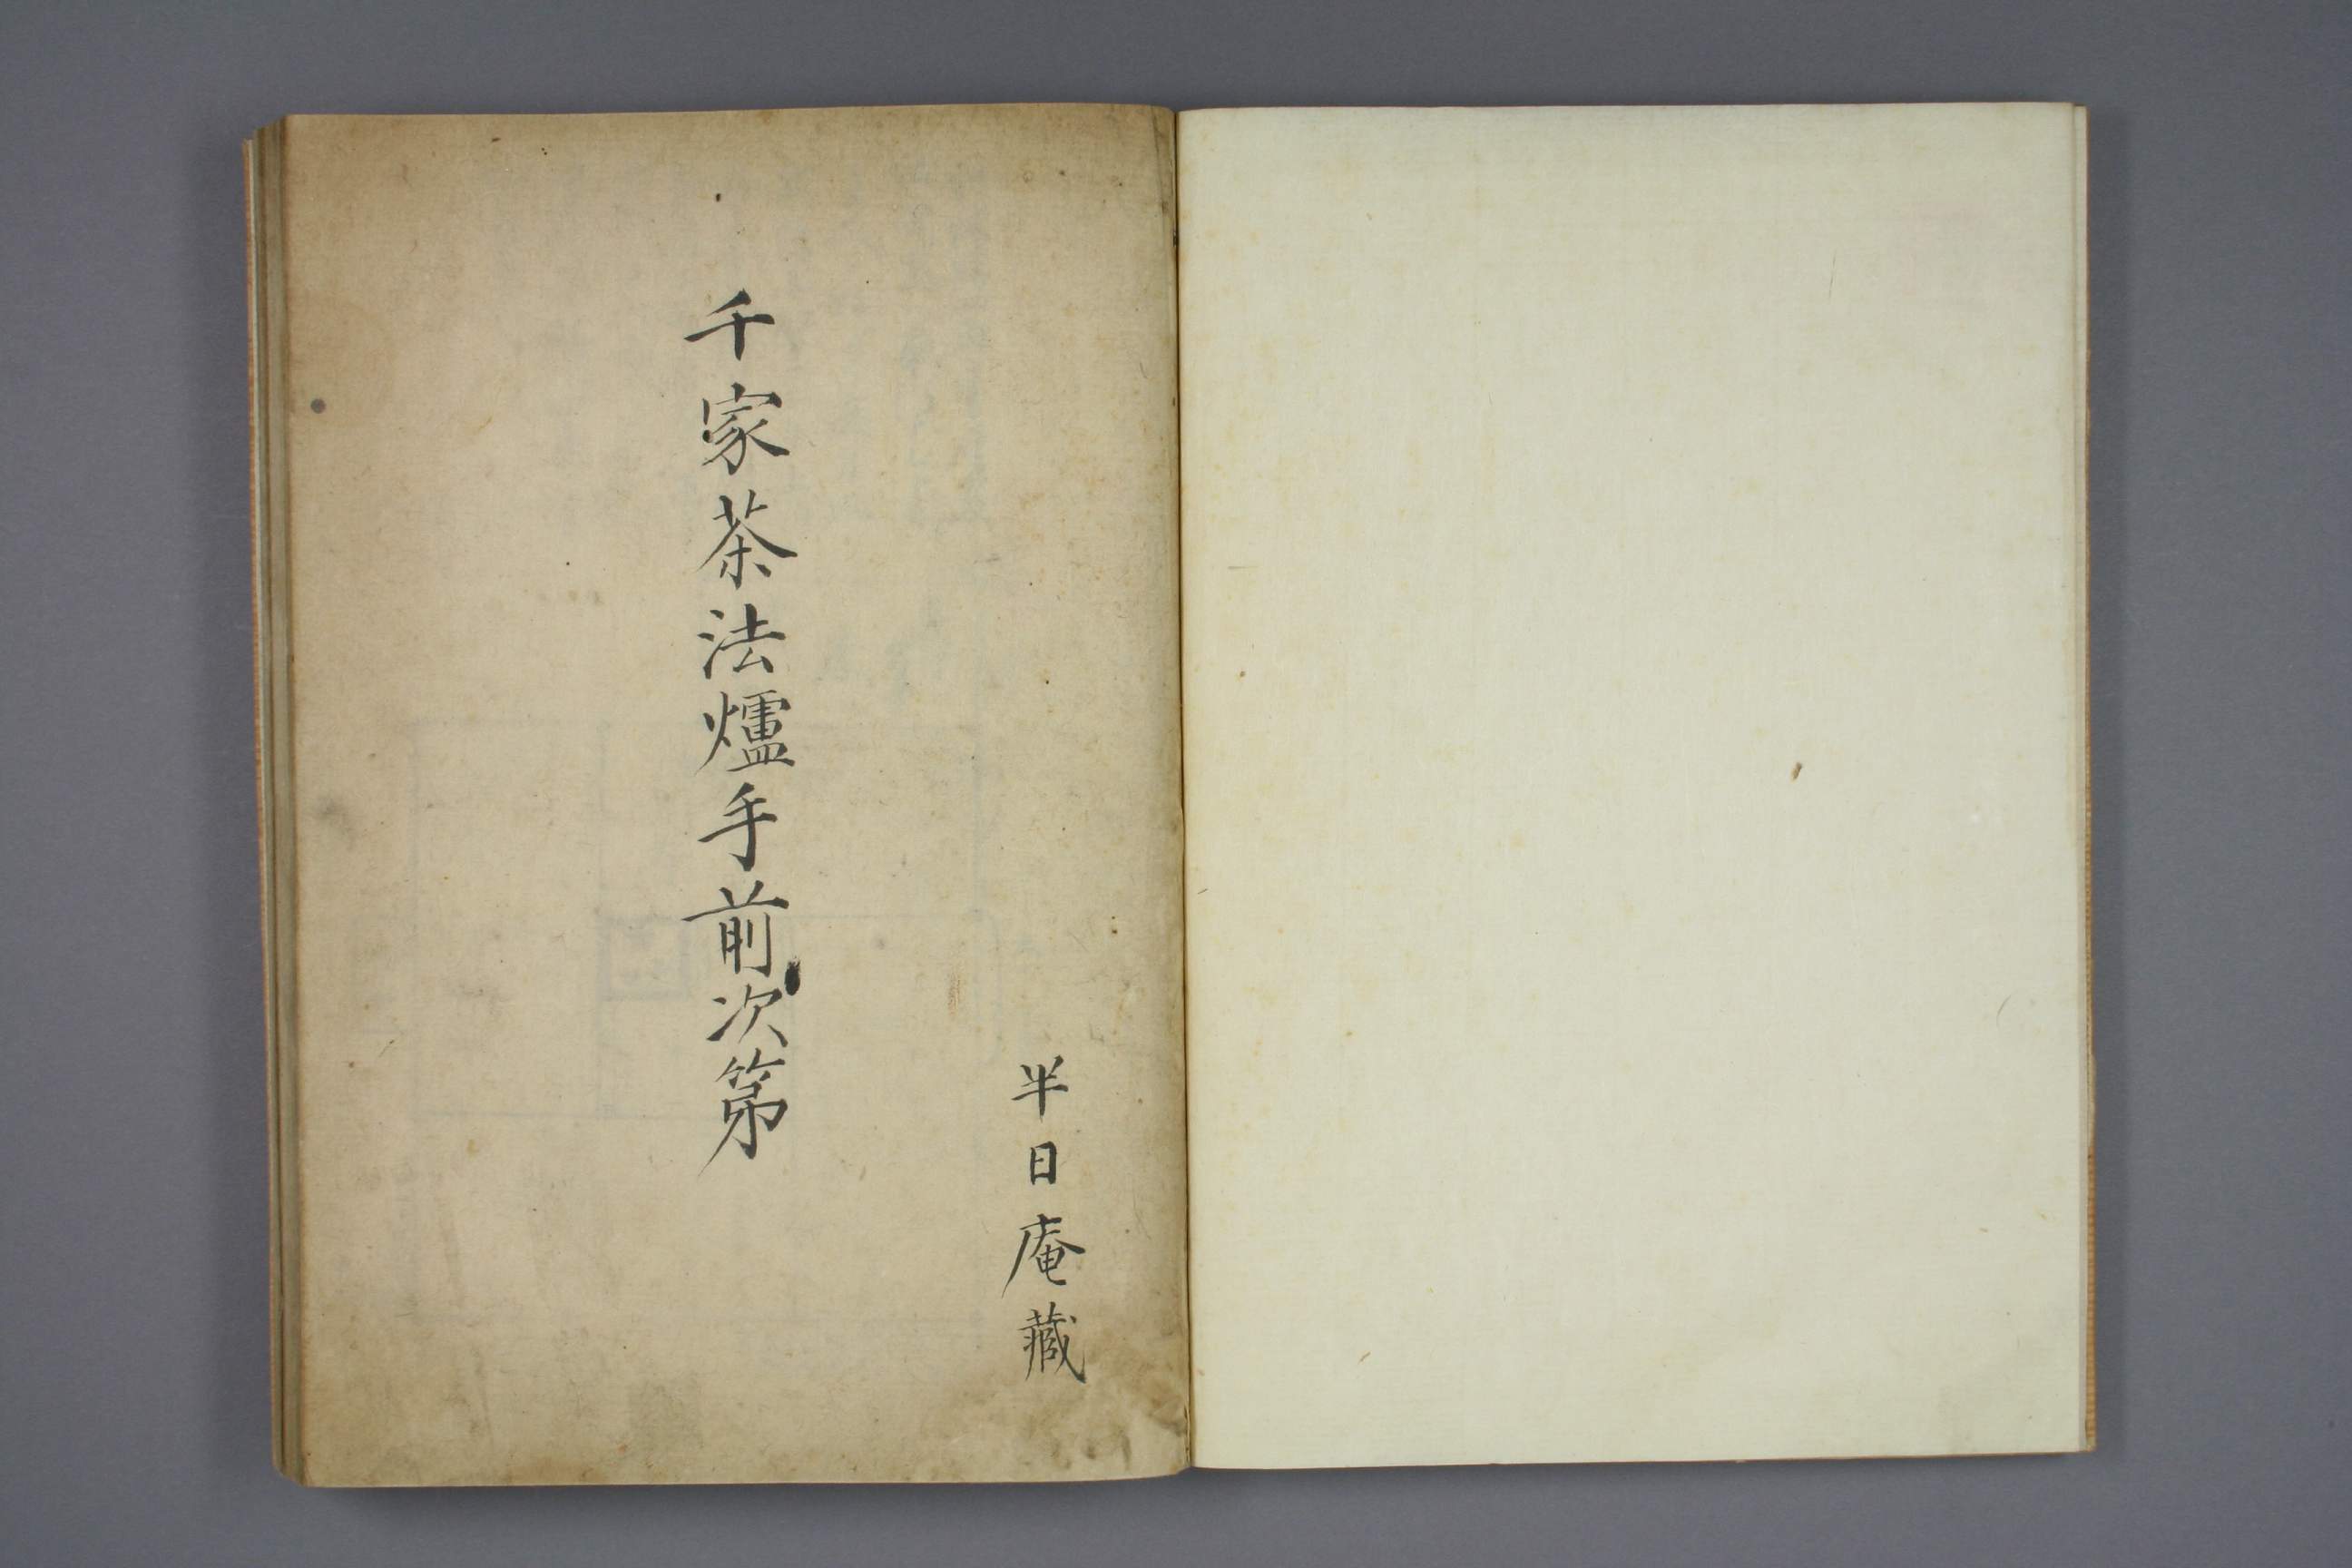 半日庵藏
千家茶法爐手前次第